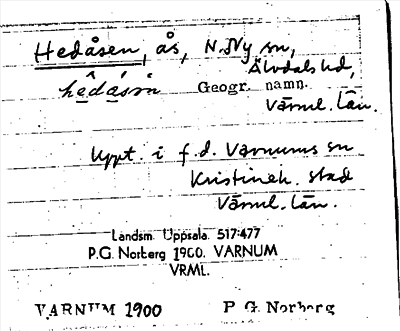 Hedåsen, ås, N. Ny sn,
Älvdals hd,
hêdásan Geogr. namn.
Värml. län.
Uppt. i f.d. Varnums sn
Kristineh. stad
Värml. län.
Landsm. Uppsala. 517:477
P.G. Norberg 1900. VARNUM
VRML.
VARNUM 1900 P G. Norberg